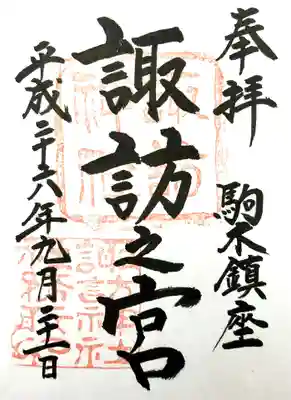 奉拝　駒木鎮座
諏訪之宮
平成二十六年九月二十一日